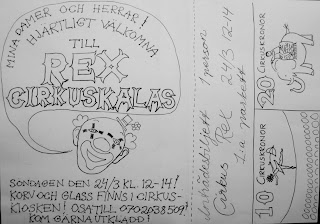 MINA DAMER OCH HERRAR!
HJÄRTLIGT VÄLKOMNA
TILL
REX
CIRKUSKALAS
SÖNDAGEN DEN 24/3 KL. 12-14!
KORV OCH GLASS FINNS I CIRKUS-
KIOSKEN! OSA TILL 0702038509!
KOM GÄRNA UTKLÄDD!
Inträdesbiljett 1 person
Cirkus Rex 24/3 12-14
1:a parkett
20 CIRKUSKRONOR
10 CIRKUSKRONOR